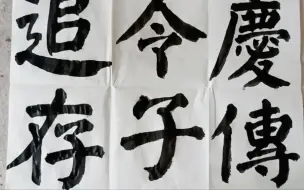 慶傳
令子
追存